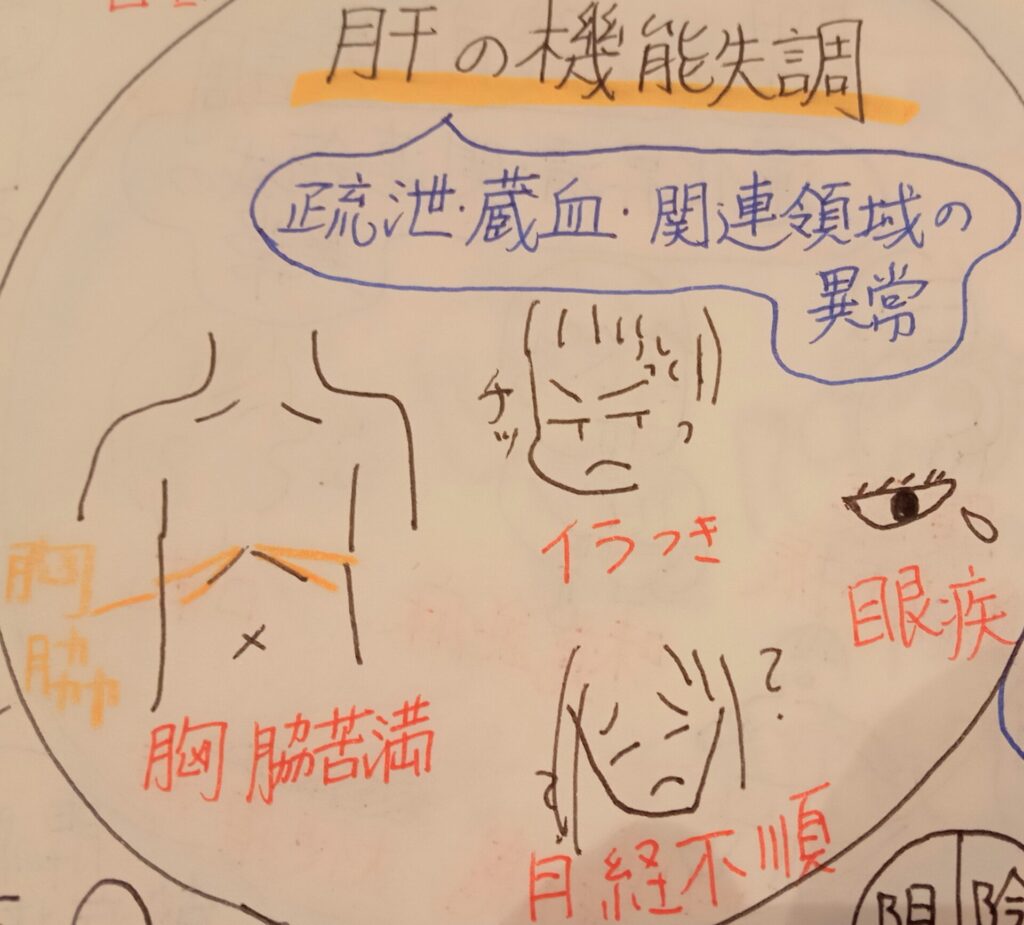 肝の機能失調
疏泄・蔵血・関連領域の
異常
チッ
イラつき
眼疾
胸
脇
胸脇苦満
?
月経不順
陰